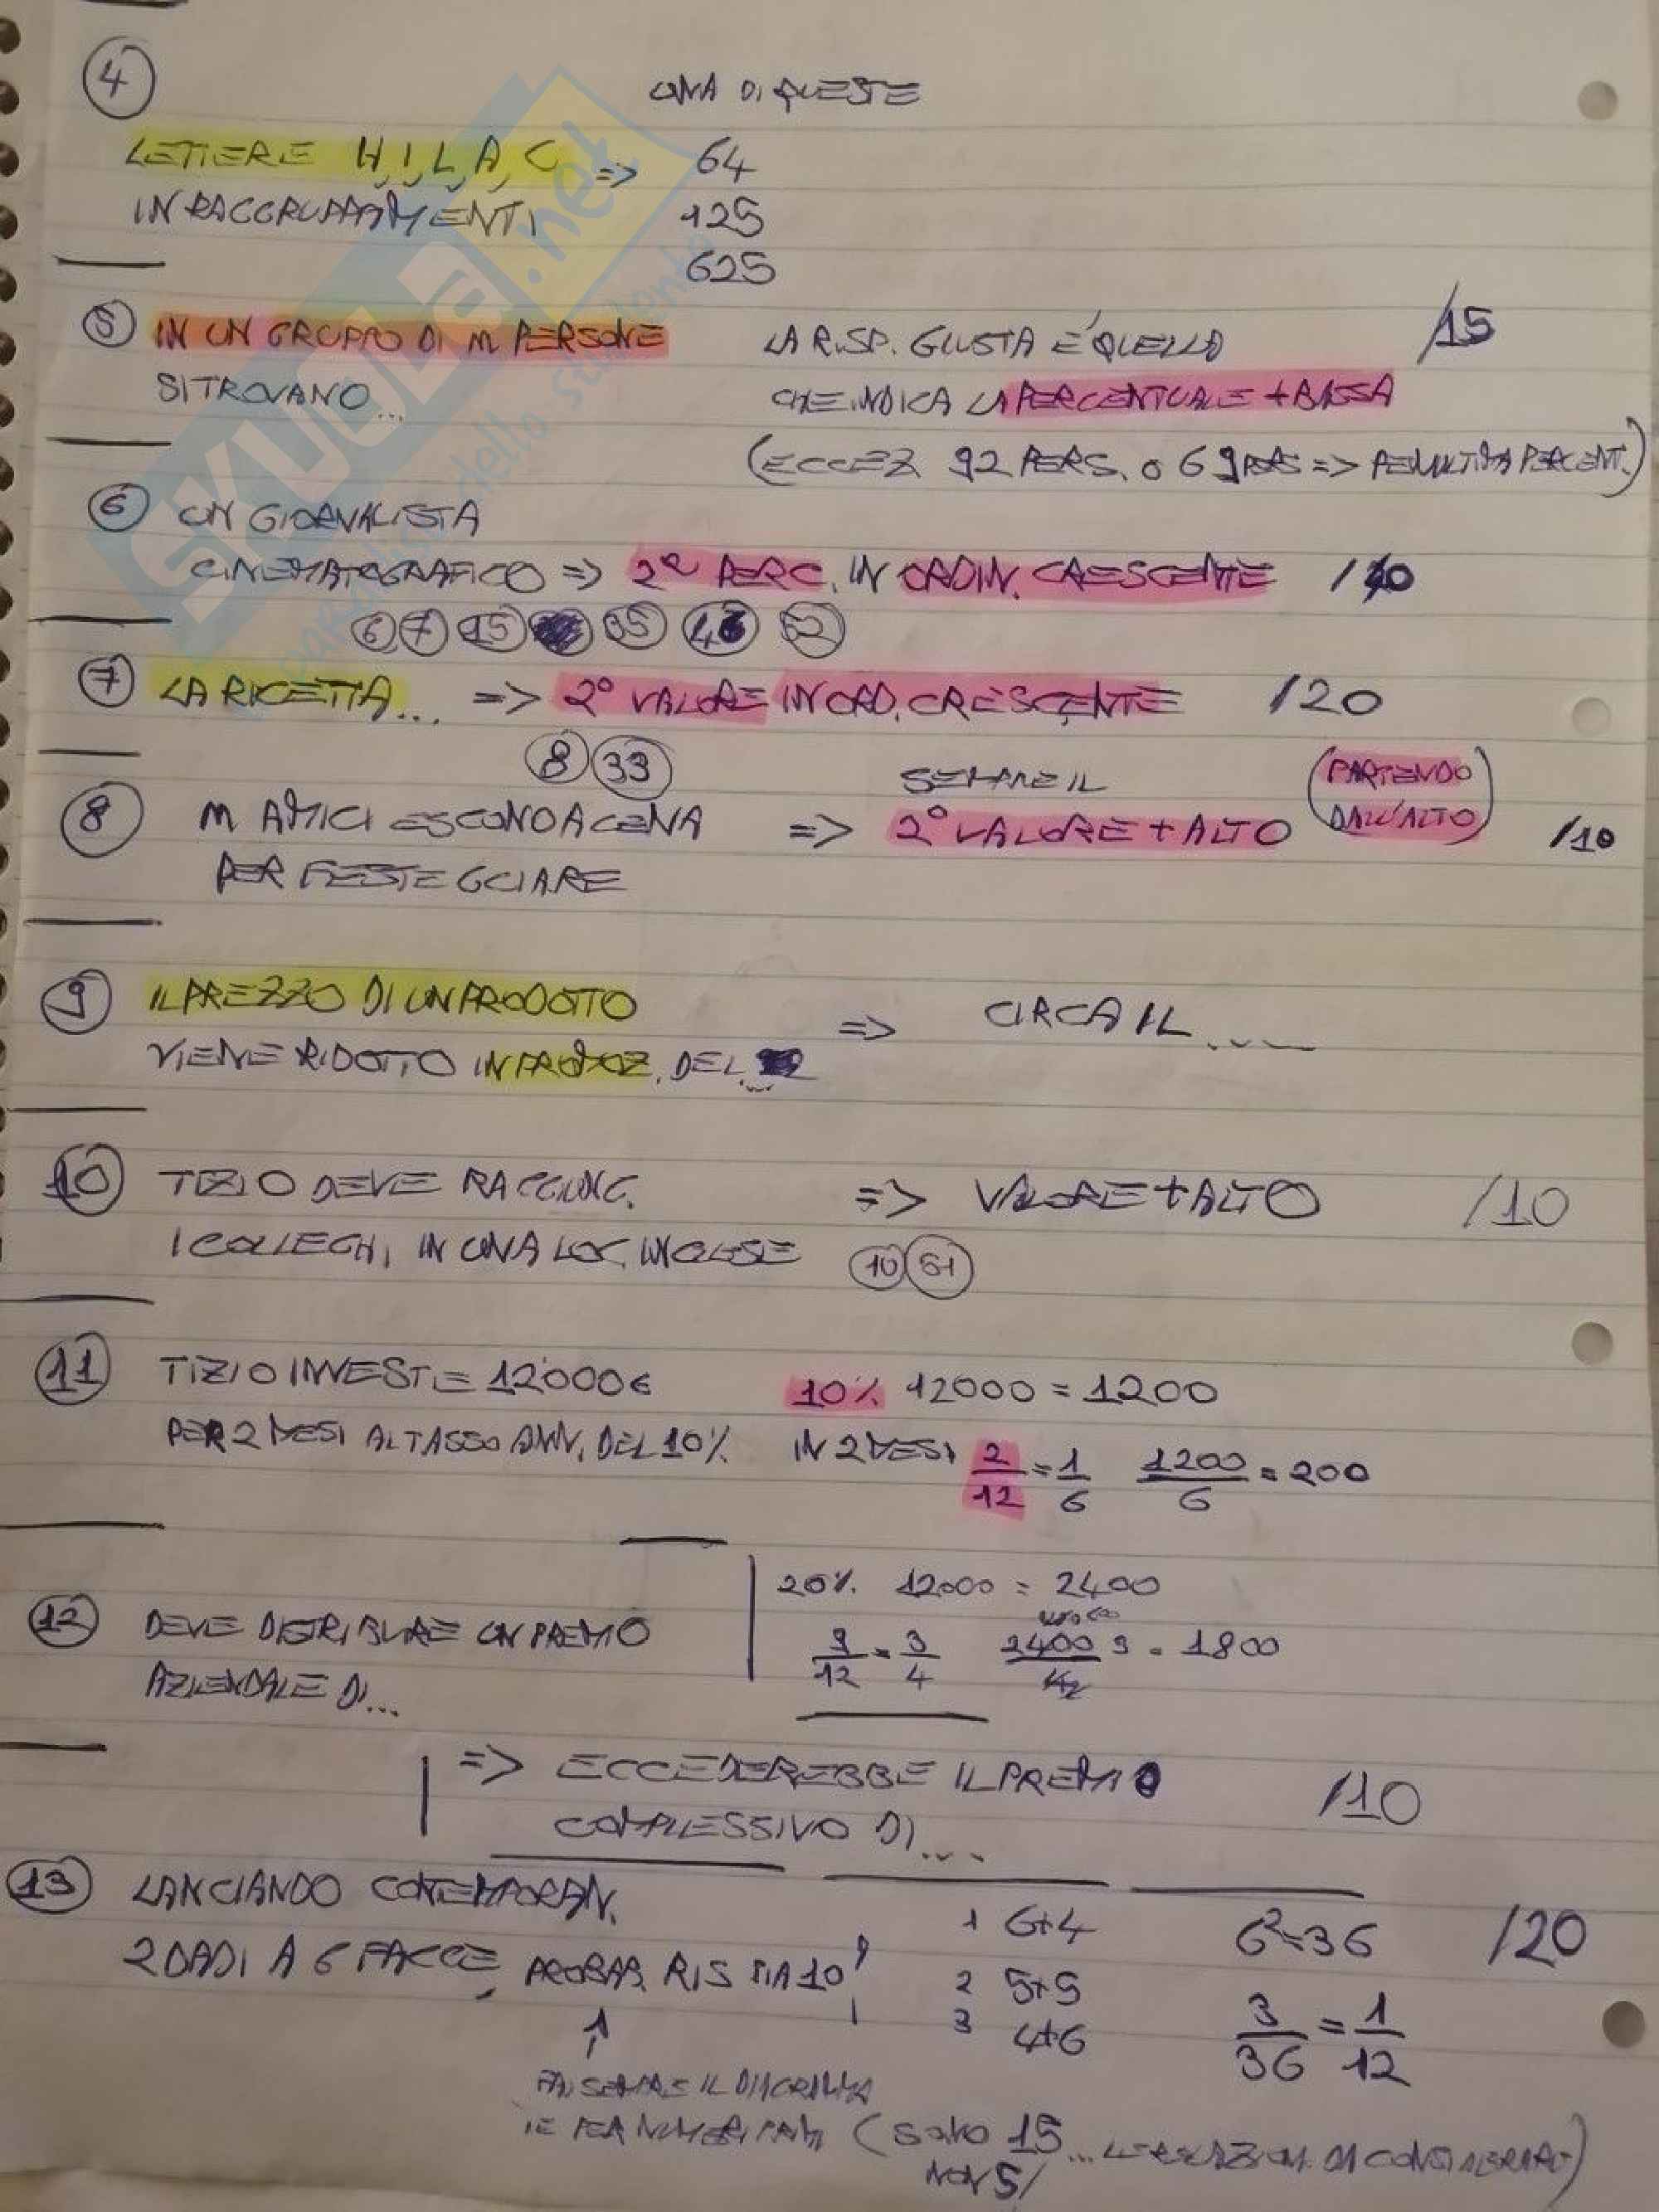 4
UNA DI QUESTE
LETTERE H, I, L, A, C => 64
IN RAGGRUPPAMENTI 125
625
5 IN UN GRUPPO DI M PERSONE LA RISP. GIUSTA E' QUELLO /15
SI TROVANO... CHE INDICA LA PERCENTUALE + BASSA
(ECCEZ 92 PERS. O 69 PERS => PENULTIMA PERCENT.)
6 UN GIORNALISTA
CINEMATOGRAFICO => 2ª PERC. IN ORDIN. CRESCENTE /10
6 7 15 35 52
7 LA RICETTA... => 2° VALORE IN ORD. CRESCENTE /20
8 33
SEMPRE IL (PARTENDO
8 M AMICI ESCONO A CENA => 2° VALORE + ALTO DALL'ALTO) /10
PER FESTEGGIARE
9 IL PREZZO DI UN PRODOTTO => CIRCA IL....
VIENE RIDOTTO IN PROPOZ. DEL...
10 TIZIO DEVE RAGGIUNG. => VALORE + ALTO /10
I COLLEGHI IN UNA LOC. INGLESE 10 51
11 TIZIO INVESTE 12000€ 10% 12000 = 1200
PER 2 MESI AL TASSO ANN. DEL 10% IN 2 MESI 2/12 = 1/6 1200/6 = 200
20% 12000 = 2400
12 DEVE DISTRIBUIRE UN PREMIO 9/12 = 3/4 2400 = 1800
AZIENDALE DI...
=> ECCEDEREBBE IL PREMIO /10
COMPLESSIVO DI...
13 LANCIANDO CONTEMPORAN. 1 6+4 6²=36 /20
2 DADI A 6 FACCE, PROBAB. RIS SIA 10 2 5+5
3 4+6 3/36 = 1/12
FAI SEMPRE IL DIAGRAMMA
(SOLO 15 ...
NON 5!
SKUOLA.net